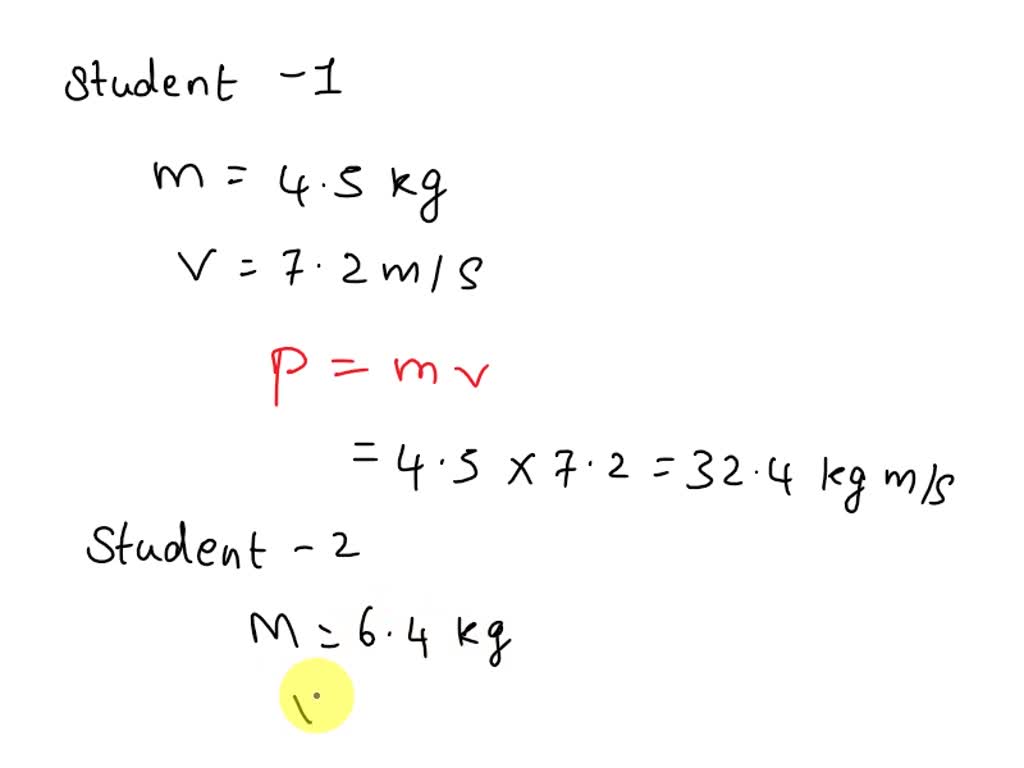 Student -1
m = 4.5 kg
v = 7.2 m/s
P = mv
= 4.5 x 7.2 = 32.4 kg m/s
Student - 2
M = 6.4 kg